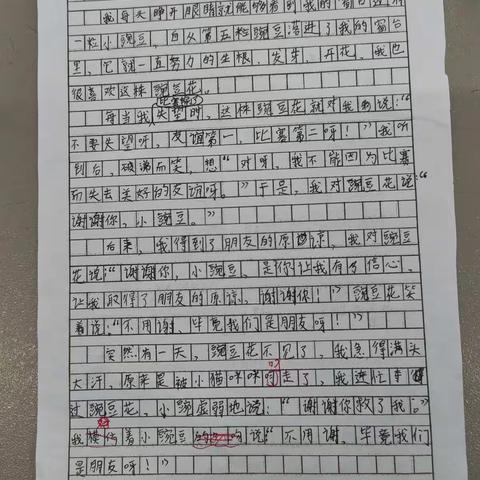 我每天睁开眼睛就能够看到我的窗台边有
一粒小豌豆，自从第五粒豌豆落进了我的窗台
里，它就一直努力的生根、发芽、开花。我也
很喜欢这株豌豆花。
每当我比赛输了失望时，这株豌豆花就对我说：“
不要失望呀，友谊第一，比赛第二呀！”我听
到后，破涕而笑，想“对呀，我不能因为比赛
而失去美好的友谊呀。”于是，我对豌豆花说：“
谢谢你，小豌豆。”
后来，我得到了朋友的原谅，我对豌豆
花说：“谢谢你，小豌豆，是你让我有了信心、
让我取得了朋友的原谅，谢谢你！”豌豆花笑
着说：“不用谢、毕竟我们是朋友呀！”
突然有一天，豌豆花不见了，我急得满头
大汗，原来是被小猫咪咪叼走了，我连忙
过豌豆花，小豌虚弱地说：“谢谢你救了我。”
我着小豌豆说“不用谢，毕竟我们
是朋友呀！”